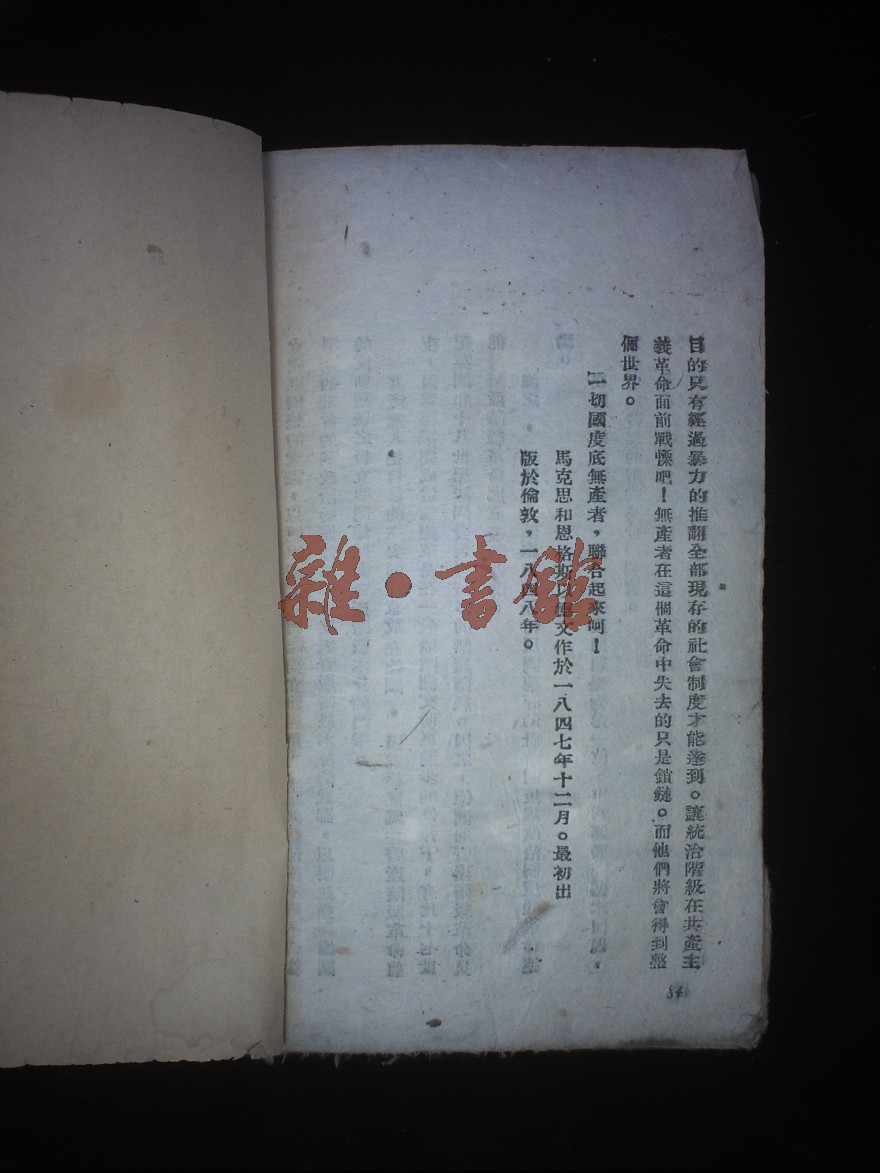 目的只有經過暴力的推翻全部現存的社會制度才能達到。讓統治階級在共產主
義革命面前戰慄吧！無產者在這個革命中失去的只是鎖鏈。而他們將會得到整
個世界。
一切國度底無產者，聯合起來呵！
馬克思和恩格斯以德文作於一八四七年十二月。最初出
版於倫敦，一八四八年。
84
雜·書館